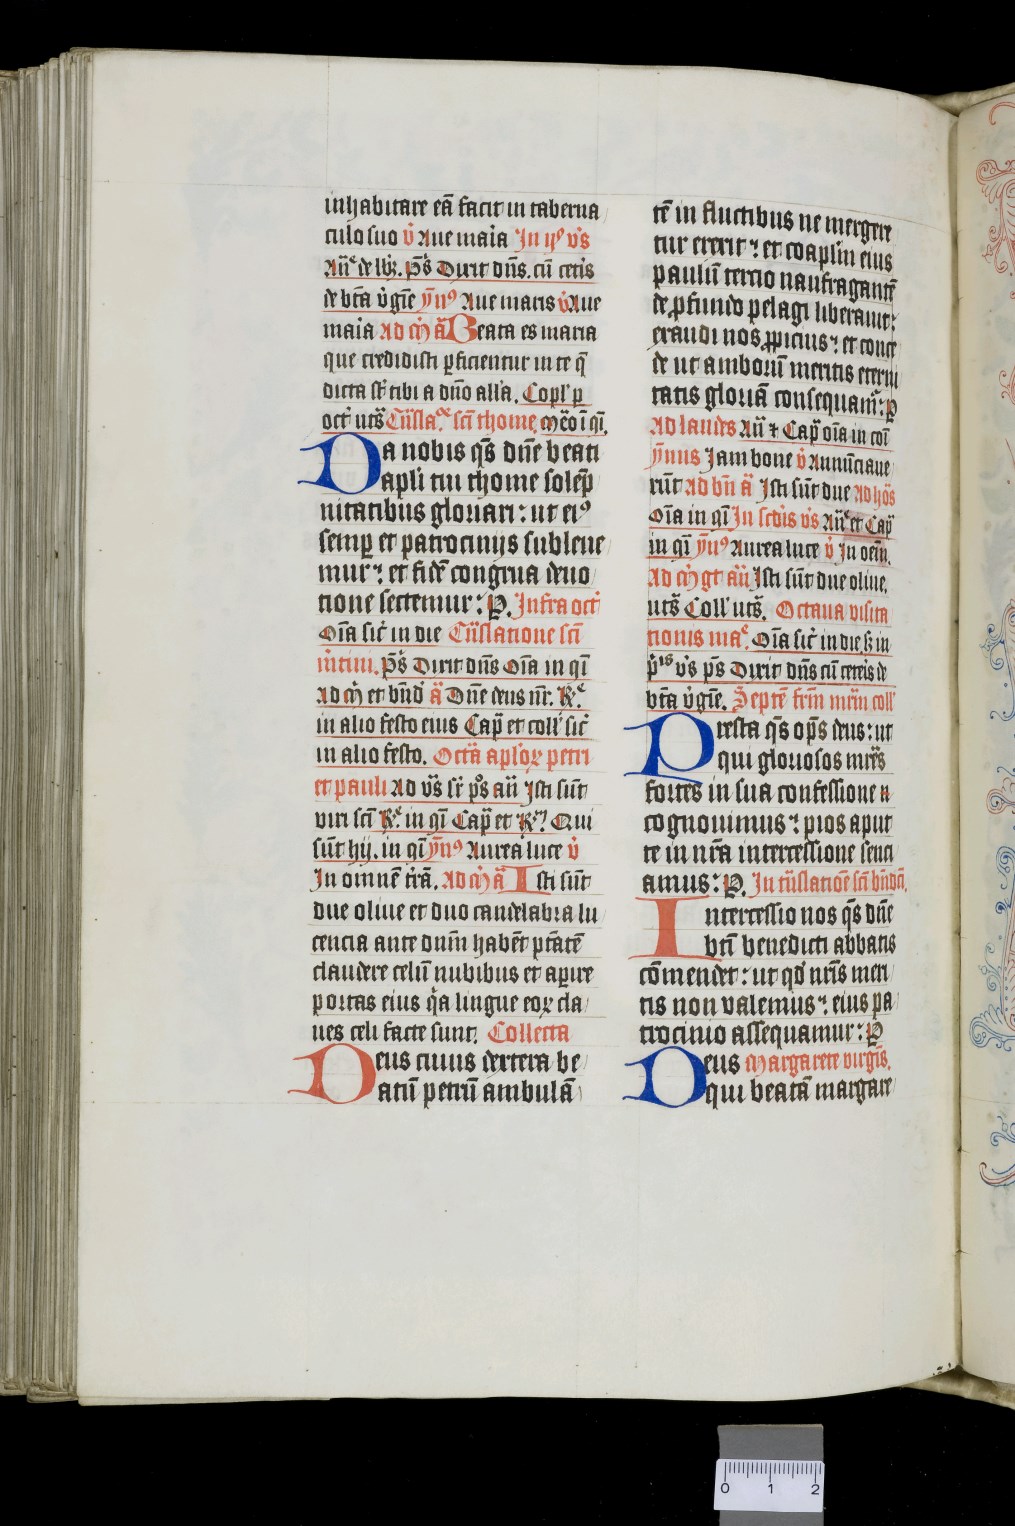 inhabitare eā facit in taberna
culo suo v̇ Aue maīa In ijᵒ vīs
Añᵉ de lbꝫ. p̄s Dixit dn̄s. cū cetis
de btā v̇gīe ym̄ꝰ Aue maris v̇ Aue
maīa Ad m̄ ā Beata es maria
que credidisti ꝑficientur in te q̄
dicta sт̄ tibi a dn̄o alla. Copl' p
octᵗ utꝫ
Da nobis qs̄ dn̄e beati
apl̄i tui thome solēp
nitatibus gloriari: ut eiꝰ
semꝑ et patrocinijs subleue
mur: et fidē congrua deuo
tione sectemur: P. Infra octᵗ
Oīa sic̄ in die Trn̄slatione scī
m̄tini. p̄s Dixit dn̄s Oīa in qī
Ad m̄ et bn̄d ā Dn̄e deus nr̄. Rᵉ
in alio festo eius Cap̄ et coll' sic̄
in alio festo. Octā aplōꝝ petri
et pauli Ad v̄s sꝑ p̄os añ Isti sūt
viri scī Rᵉ. in qī Cap̄ et Rᵐ Qui
sūt hij. in qī ym̄ꝰ Aurea luce v̇
In omnē tr̄ā. Ad m̄ ā Isti sūt
due oliue et duo candelabra lu
cencia ante dn̄m habēt ptātē
claudere celū nubibus et apire
portas eius q̄a lingue eoꝝ cla
ues celi facte sunt. Collecta
Deus cuius dextera be
atū petrū ambulā
tē in fluctibus ne merge
tur erexit: et coapl̄m eius
paulū tercio naufragantē
de ꝓfundo pelagi liberauit:
exaudi nos ꝓpicius: et conce
de ut amboꝝ meritis eterni
tatis gloriā consequamᷣ: P
Ad laudes Añ ⁊ Cap̄ oīa in cōi
ym̄nus Iam bone v̇ Annūciaue
rūt Ad bn̄ ā Isti sūt due Ad hōs
Oīa in qī In scdīs vīs Añᵉ et Cap̄
in qī ym̄ꝰ Aurea luce v̇ In oēm̄.
Ad m̄gt añ Isti sūt due oliue.
utꝫ Coll' utꝫ. Octaua visita
tionis maᵉ. Oīa sic̄ in die. sꝫ in
p̄ⁱˢ vīs p̄s Dixit dn̄s cū ceteis de
btā v̇gīe. Septē frm̄ mr̄m coll'
Presta qs̄ op̄s deus: ut
qui gloriosos mr̄es
fortes in sua confessione
cognouimus: pios aput
te in nrā intercessione senti
amus: P. In trn̄slatiōe scī bn̄dcī.
Intercessio nos qs̄ dn̄e
btī benedicti abbatis
cōmendet: ut qd̄ nr̄is meri
tis non valemus: eius pa
trocinio assequamur: P
Deus Margarete virgīs.
qui beatā margare